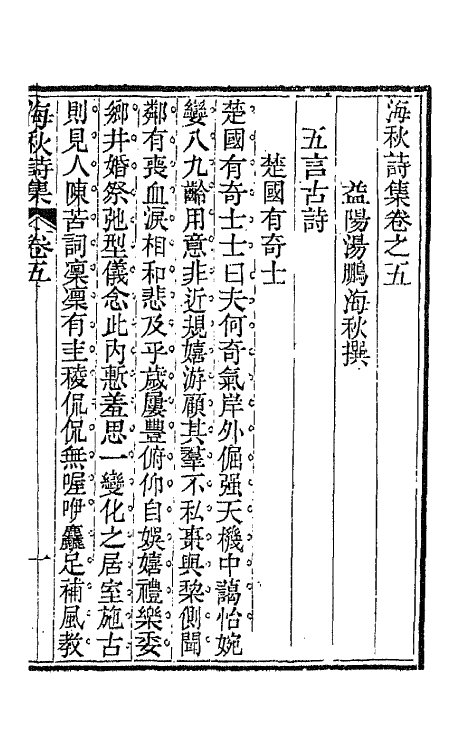 海秋詩集卷之五
益陽湯鵬海秋撰
五言古詩
楚國有奇士
楚國有奇士士曰夫何奇氣岸外倔强天機中藹怡婉
孌八九齡用意非近規嬉游顧其羣不私棗與棃側聞
鄰有喪血淚相和悲及乎歲屢豐俯仰自娛嬉禮樂委
鄉井婚祭弛型儀念此内慙羞思一變化之居室施古
則見人陳苦詞凜凜有圭稜侃侃無喔咿麤足補風教
海秋詩集
卷五
一